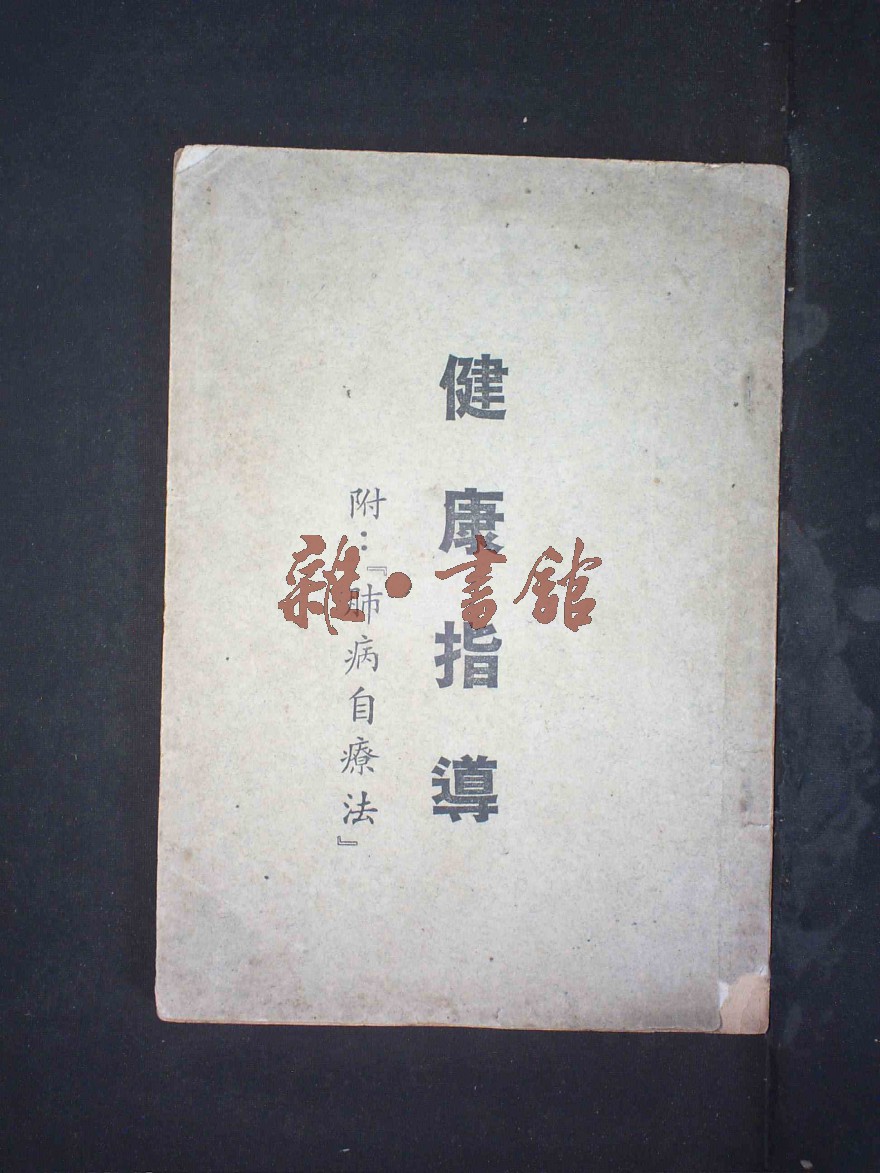 健康指導
附：『肺病自療法』
雜·書館